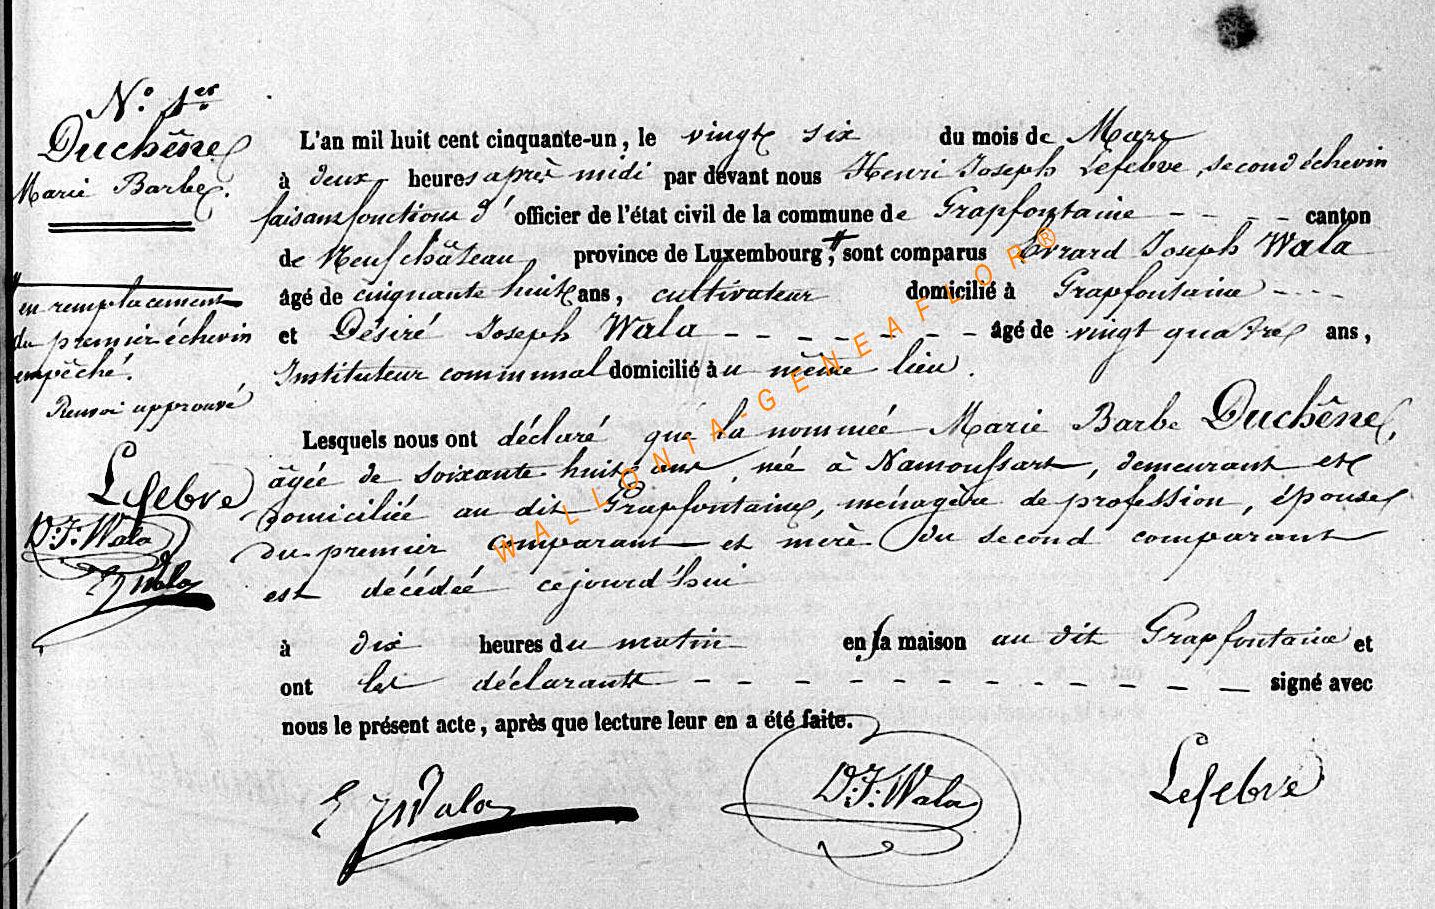 N.º 1.er
Duchêne
Marie Barbe.
en remplacement
du premier échevin
empêché.
Renvoi approuvé
Lefebvre
D.J. Wala
E J Wala
L'an mil huit cent cinquante-un, le vingt six du mois de Mars
à deux heures après midi par devant nous Henri Joseph Lefebvre, second échevin
faisant fonctions d'officier de l'état civil de la commune de Grapfontaine - - - - canton
de Neufchâteau province de Luxembourg #, sont comparus Evrard Joseph Wala
âgé de cinquante huit ans, cultivateur domicilié à Grapfontaine - - -
et Désiré Joseph Wala - - - - - - - âgé de vingt quatre ans,
Instituteur communal domicilié au même lieu.
Lesquels nous ont déclaré que la nommée Marie Barbe Duchêne,
âgée de soixante huit ans, née à Namoussart, demeurant et
domiciliée au dit Grapfontaine, ménagère de profession, épouse
du premier comparant et mère du second comparant
est décédée cejourd'hui
à dix heures du matin en sa maison au dit Grapfontaine et
ont les déclarants - - - - - - - - - - - - - signé avec
nous le présent acte, après que lecture leur en a été faite.
E J Wala
D.J. Wala
Lefebvre
WALLONIA-GENEAFLOR®